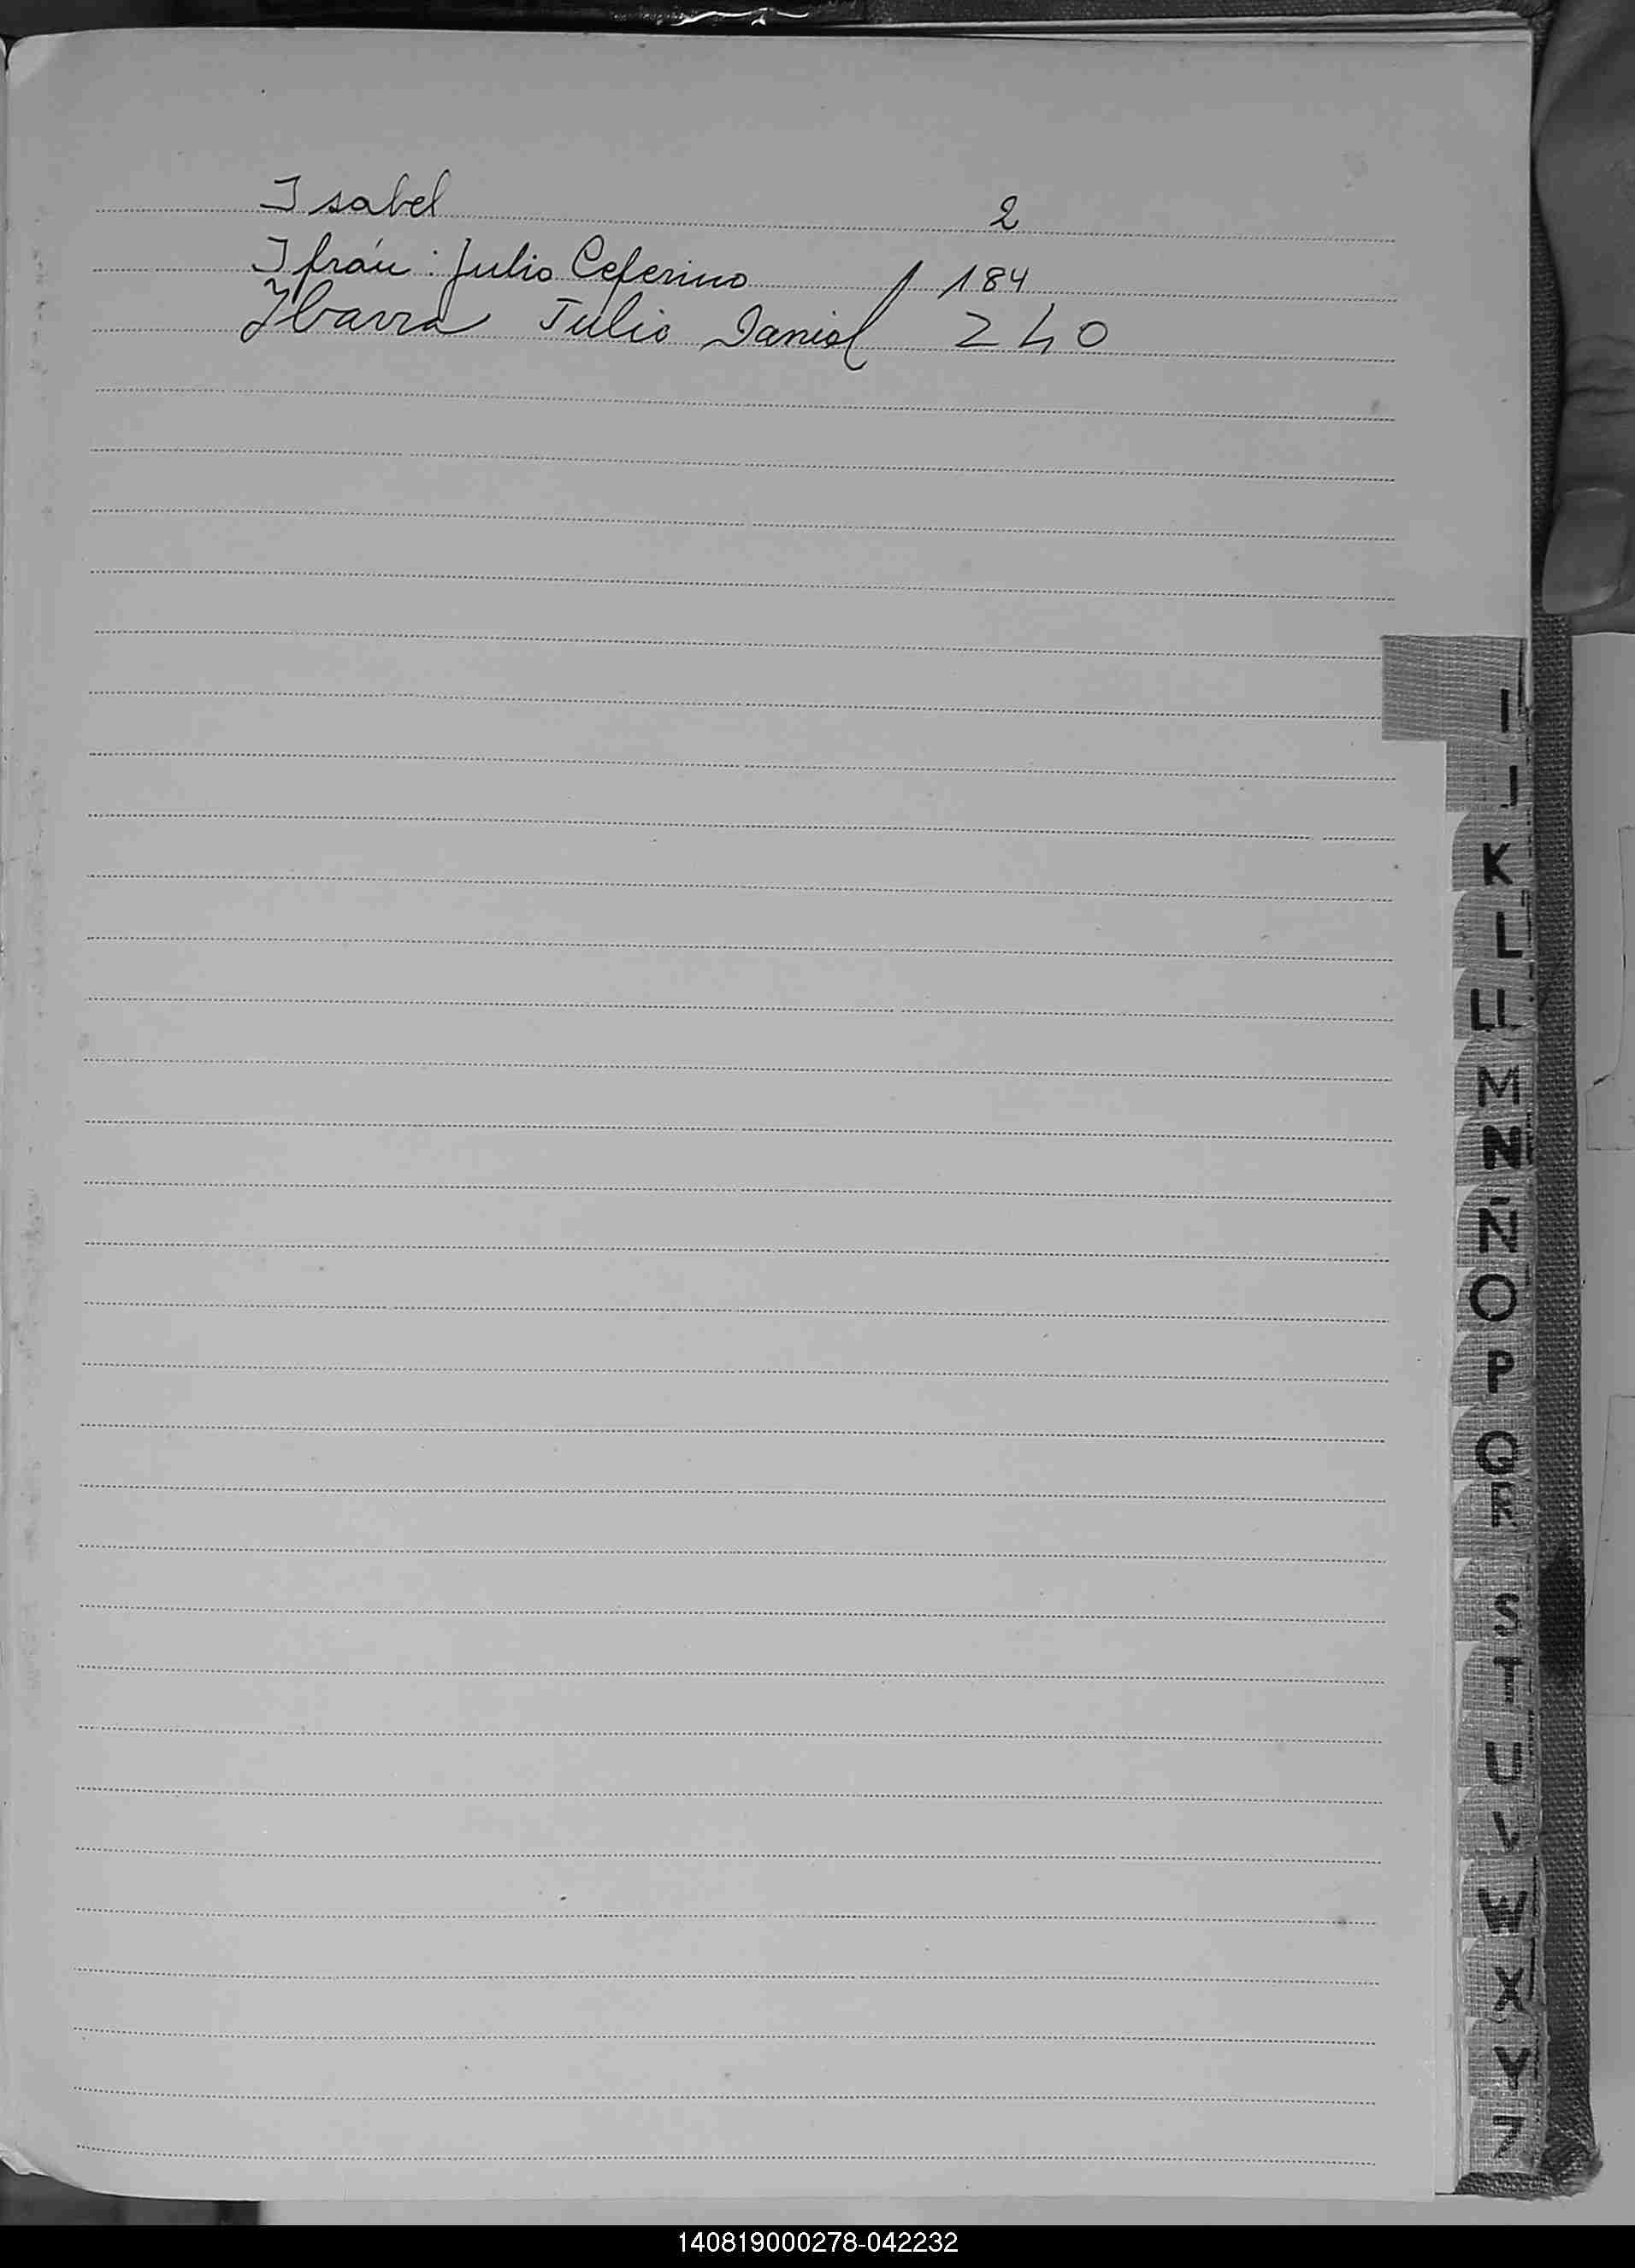 Isabel 2
Ifrán: Julio Ceferino 184
Ibarra Julio Daniel 240
I
J
K
L
Ll
M
N
Ñ
O
P
Q
R
S
T
U
V
W
X
Y
Z
140819000278-042232